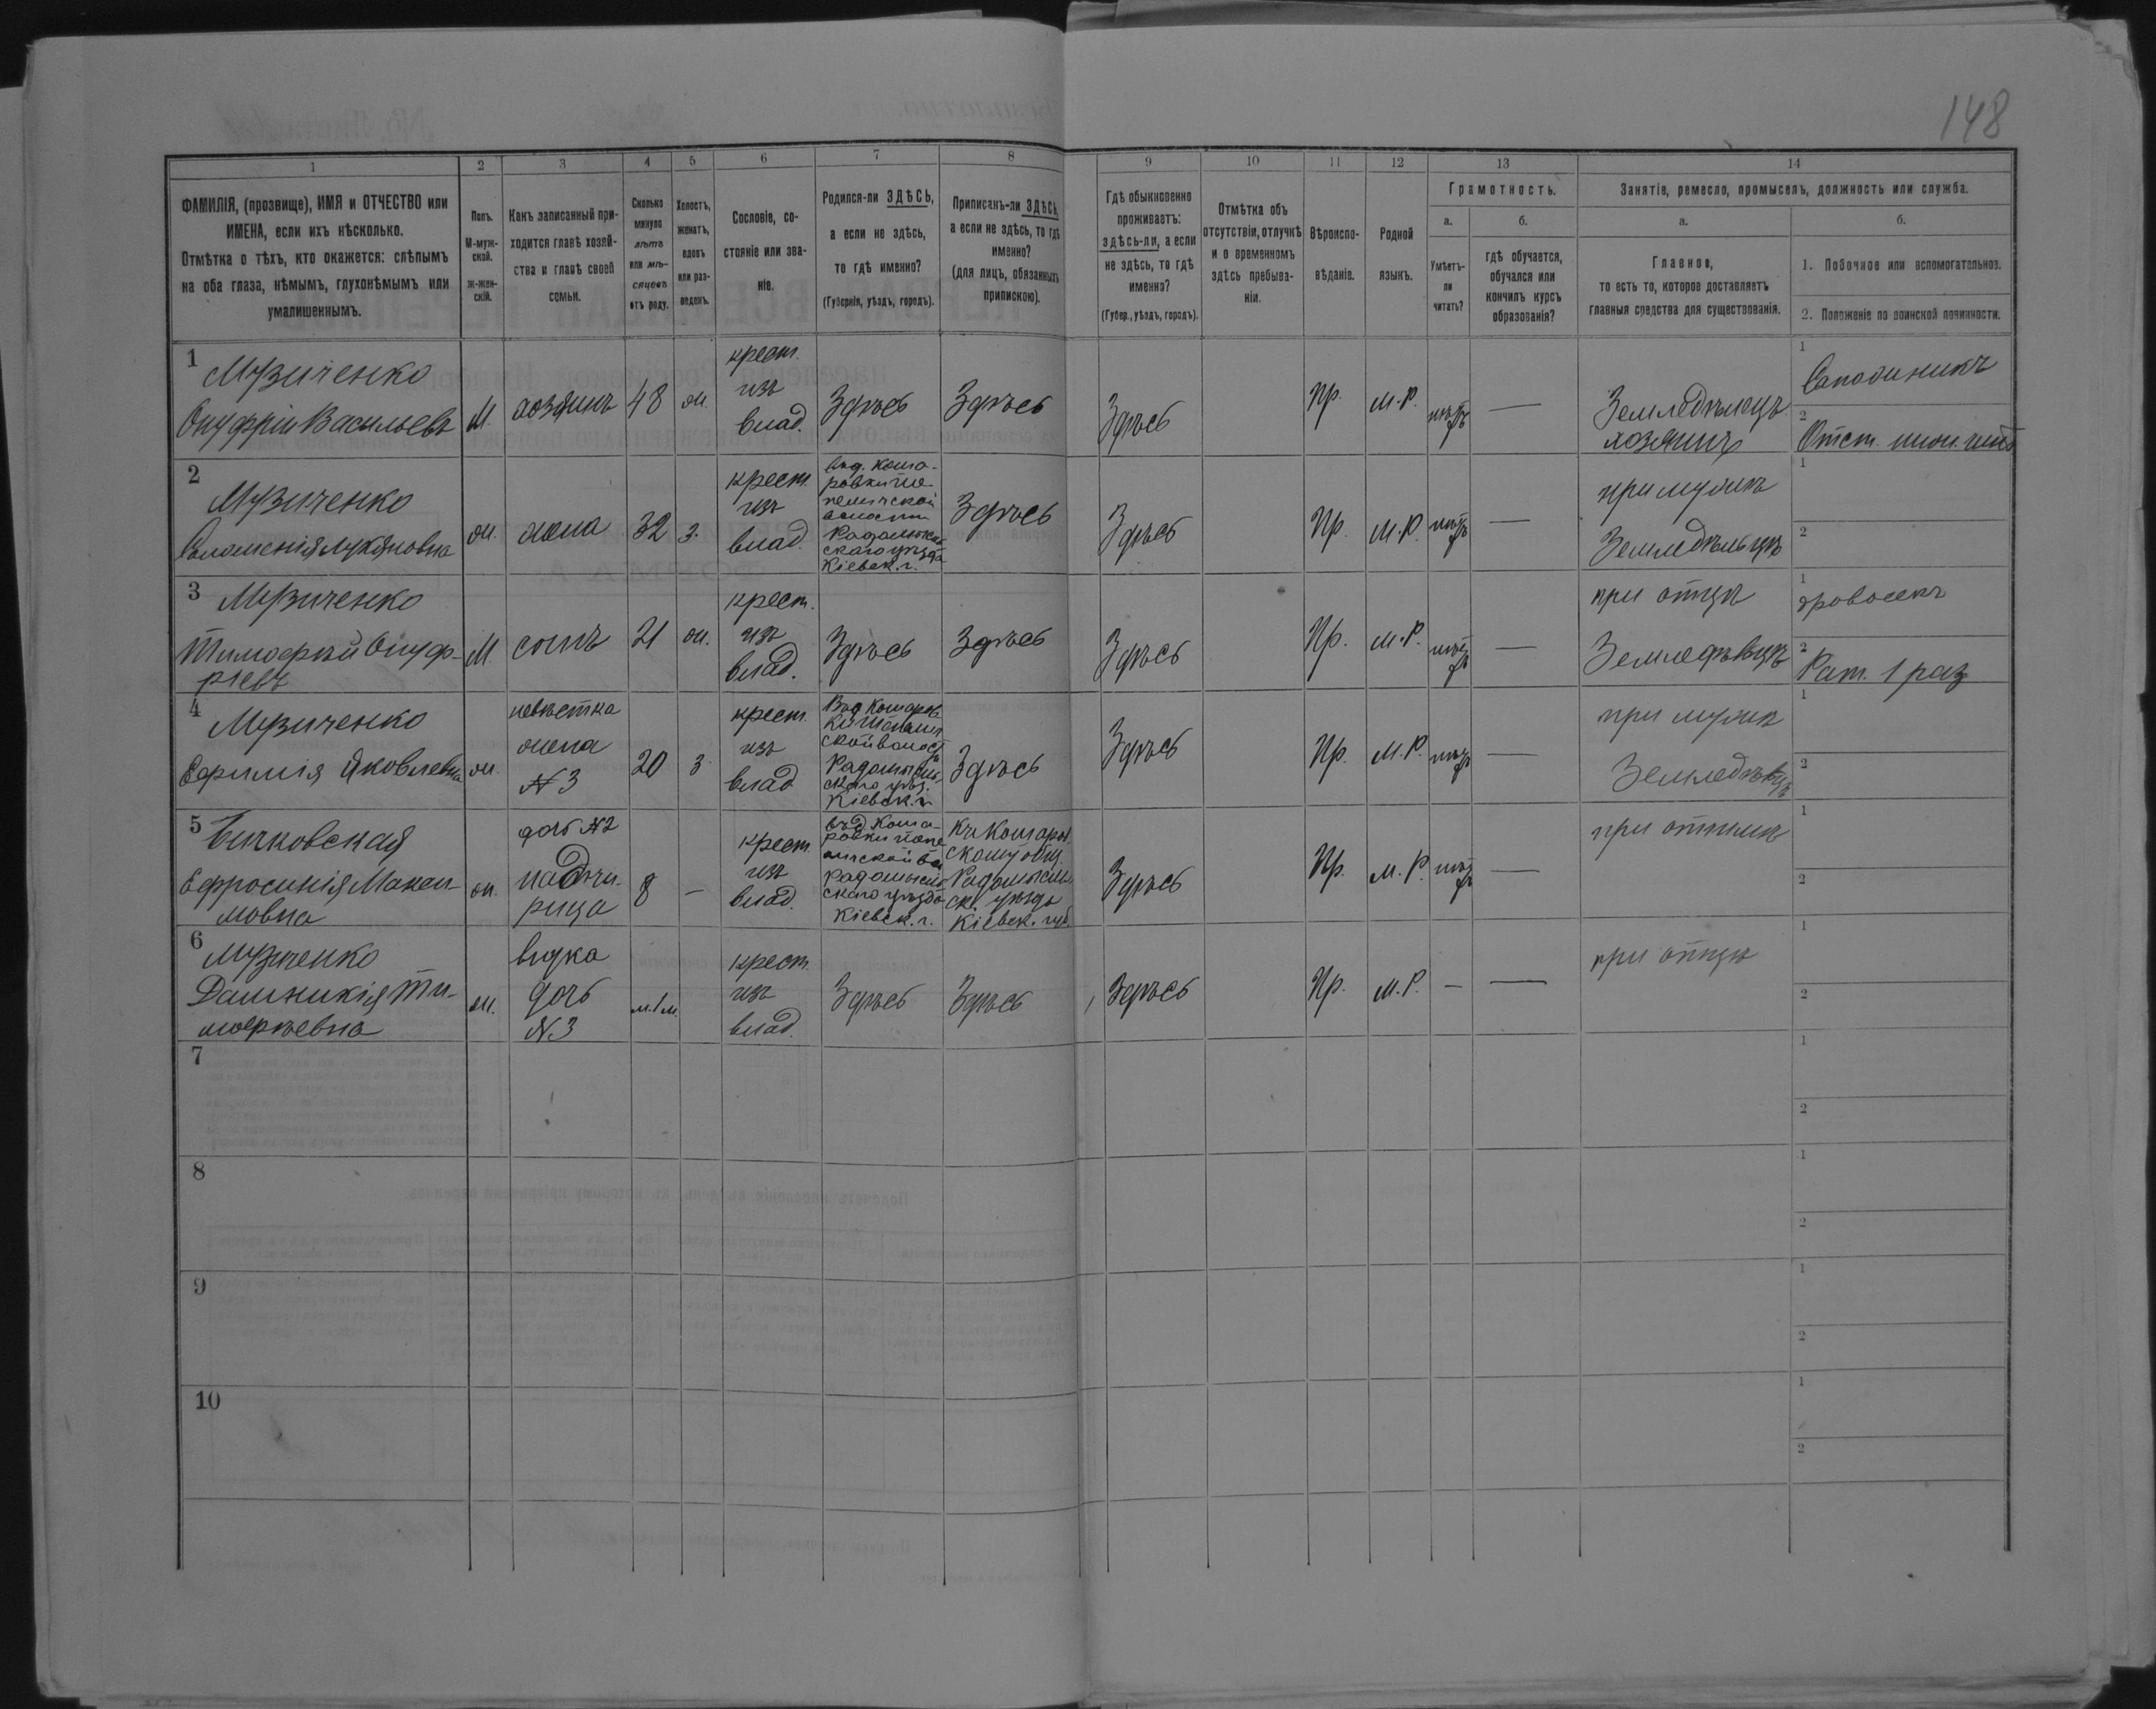 148
1 2 3 4 5 6 7 8 9 10 11 12 13 14
ФАМИЛІЯ, (прозвище), ИМЯ и ОТЧЕСТВО или
ИМЕНА, если ихъ нѣсколько.
Отмѣтка о тѣхъ, кто окажется: слѣпымъ
на оба глаза, нѣмымъ, глухонѣмымъ или
умалишеннымъ.
Полъ.
М-муж-
ской.
Ж-жен-
скій.
Какъ записанный при-
ходится главѣ хозяй-
ства и главѣ своей
семьи.
Сколько
минуло
лѣтъ
или мѣ-
сяцевъ
отъ роду.
Холостъ,
женатъ,
вдовъ
или раз-
веденъ.
Сословіе, со-
стояніе или зва-
ніе.
Родился-ли ЗДѢСЬ,
а если не здѣсь,
то гдѣ именно?
(Губернія, уѣздъ, городъ).
Приписанъ-ли ЗДѢСЬ,
а если не здѣсь, то гдѣ
именно?
(для лицъ, обязанныхъ
припискою).
Гдѣ обыкновенно
проживаетъ:
здѣсь-ли, а если
не здѣсь, то гдѣ
именно?
(Губер., уѣздъ, городъ).
Отмѣтка объ
отсутствіи, отлучкѣ
и о временномъ
здѣсь пребыва-
ніи.
Вѣроиспо-
вѣданіе.
Родной
языкъ.
Грамотность.
а.
Умѣетъ-
ли
читать?
б.
гдѣ обучается,
обучался или
кончилъ курсъ
образованія?
Занятіе, ремесло, промыселъ, должность или служба.
а.
Главное,
то есть то, которое доставляетъ
главныя средства для существованія.
б.
1. Побочное или вспомогательное.
2. Положеніе по воинской повинности.
1
Музиченко
Онуфрій Васильевъ
М.
хозяинъ
48
ж.
крест.
изъ
влад.
Здѣсь
Здѣсь
Здѣсь
Пр.
М.Р.
нѣтъ
—
Земледѣлецъ
хозяинъ
1
2
Отст.
2
Музиченко
Лукяновна
ж.
жена
32
з.
крест.
изъ
влад.
въ д. Кома-
ровки
волости
Радомысль
скаго уѣзда
Кіевск. г.
Здѣсь
Здѣсь
Пр.
М.Р.
нѣтъ
—
при мужѣ
Земледѣльцѣ
1
2
3
Музиченко
Тимофѣй Онуф-
ріевъ
М.
сынъ
21
ж.
крест.
изъ
влад.
Здѣсь
Здѣсь
Здѣсь
Пр.
М.Р.
нѣтъ
—
при отцѣ
Земледѣльцѣ
1
дровосекъ
2
Рат. 1 раз
4
Музиченко
Ефимія Яковлевна
ж.
невѣстка
жена
№ 3
20
з
крест.
изъ
влад
Въ д Комаров
ки
ской волост
Радомысль
скаго уѣз.
Кіевск. г.
Здѣсь
Здѣсь
Пр.
М.Р.
нѣтъ
—
при мужѣ
Земледѣльцѣ
1
2
5
Бичковская
Ефросинія Макси-
мовна
ж.
дочь №2
падчи-
рица
8
—
крест.
изъ
влад.
въ д Кома-
ровки
Радомысль
скаго уѣзда
Кіевск. г.
Къ Комаров
скому общ.
Радомысль
ск. уѣзда
Кіевск. губ.
Здѣсь
Пр.
М.Р.
нѣтъ
—
при отчимѣ
1
2
6
Музиченко
Домникія Ти-
мофѣевна
ж.
внука
дочь
№3
м. 1 м.
крест.
изъ
влад.
Здѣсь
Здѣсь
Здѣсь
Пр.
М.Р.
—
—
при отцѣ
1
2
7
1
2
8
1
2
9
1
2
10
1
2